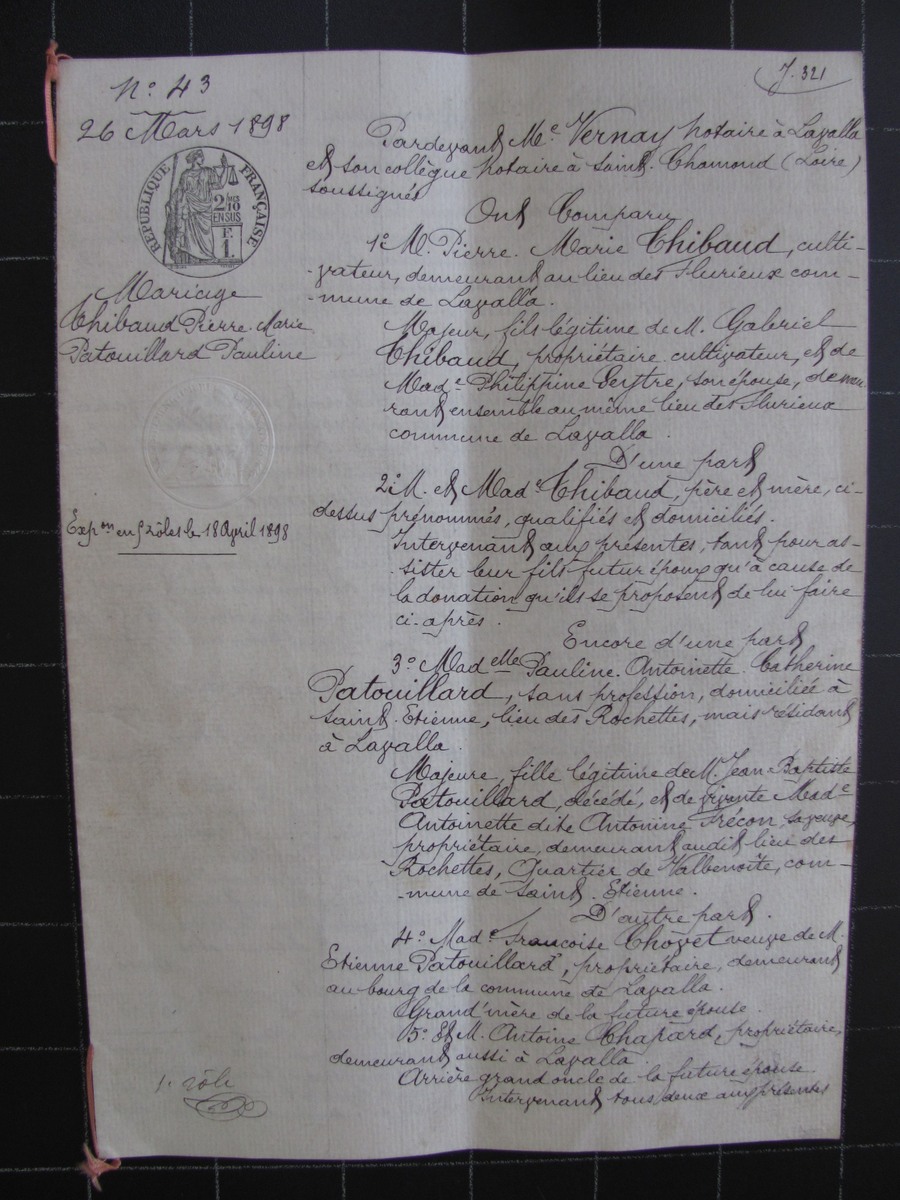 N° 43
J. 321
26 Mars 1898
RÉPUBLIQUE FRANÇAISE
2/10
EN SUS
F.
1.
Mariage
Thibaud Pierre-Marie
Patouillard Pauline
Expon en 5 rôles le 18 Avril 1898
Pardevant Me Vernay notaire à Lavalla
et son collègue notaire à Saint-Chamond (Loire)
soussignés
Ont Comparu
1° M. Pierre-Marie Thibaud, culti-
-vateur, demeurant au lieu des Flurieux com-
-mune de Lavalla.
Majeur, fils légitime de M. Gabriel
Thibaud, propriétaire cultivateur, et de
Made Philippine son épouse, demeu-
rant ensemble au même lieu des Flurieux
commune de Lavalla.
D'une part
2° M. et Made Thibaud, père et mère, ci-
dessus prénommés, qualifiés et domiciliés.
Intervenant aux présentes, tant pour as-
-sister leur fils futur époux qu'à cause de
la donation qu'ils se proposent de lui faire
ci-après.
Encore d'une part
3° Madelle Pauline Antoinette Catherine
Patouillard, sans profession, domiciliée à
Saint-Etienne, lieu des Rochettes, mais résidant
à Lavalla.
Majeure, fille légitime de M. Jean-Baptiste
Patouillard, décédé, et de vivante Made
Antoinette dite Antonine Frécon, sa veuve,
propriétaire, demeurant audit lieu des
Rochettes, Quartier de Valbenoîte, com-
-mune de Saint-Etienne.
D'autre part.
4° Made Françoise Chovet veuve de M.
Etienne Patouillard, propriétaire, demeurant
au bourg de la commune de Lavalla.
Grand'mère de la future épouse.
5° Et M. Antoine Chavard, propriétaire,
demeurant aussi à Lavalla.
Arrière grand oncle de la future épouse.
Intervenant tous deux aux présentes
1er rôle